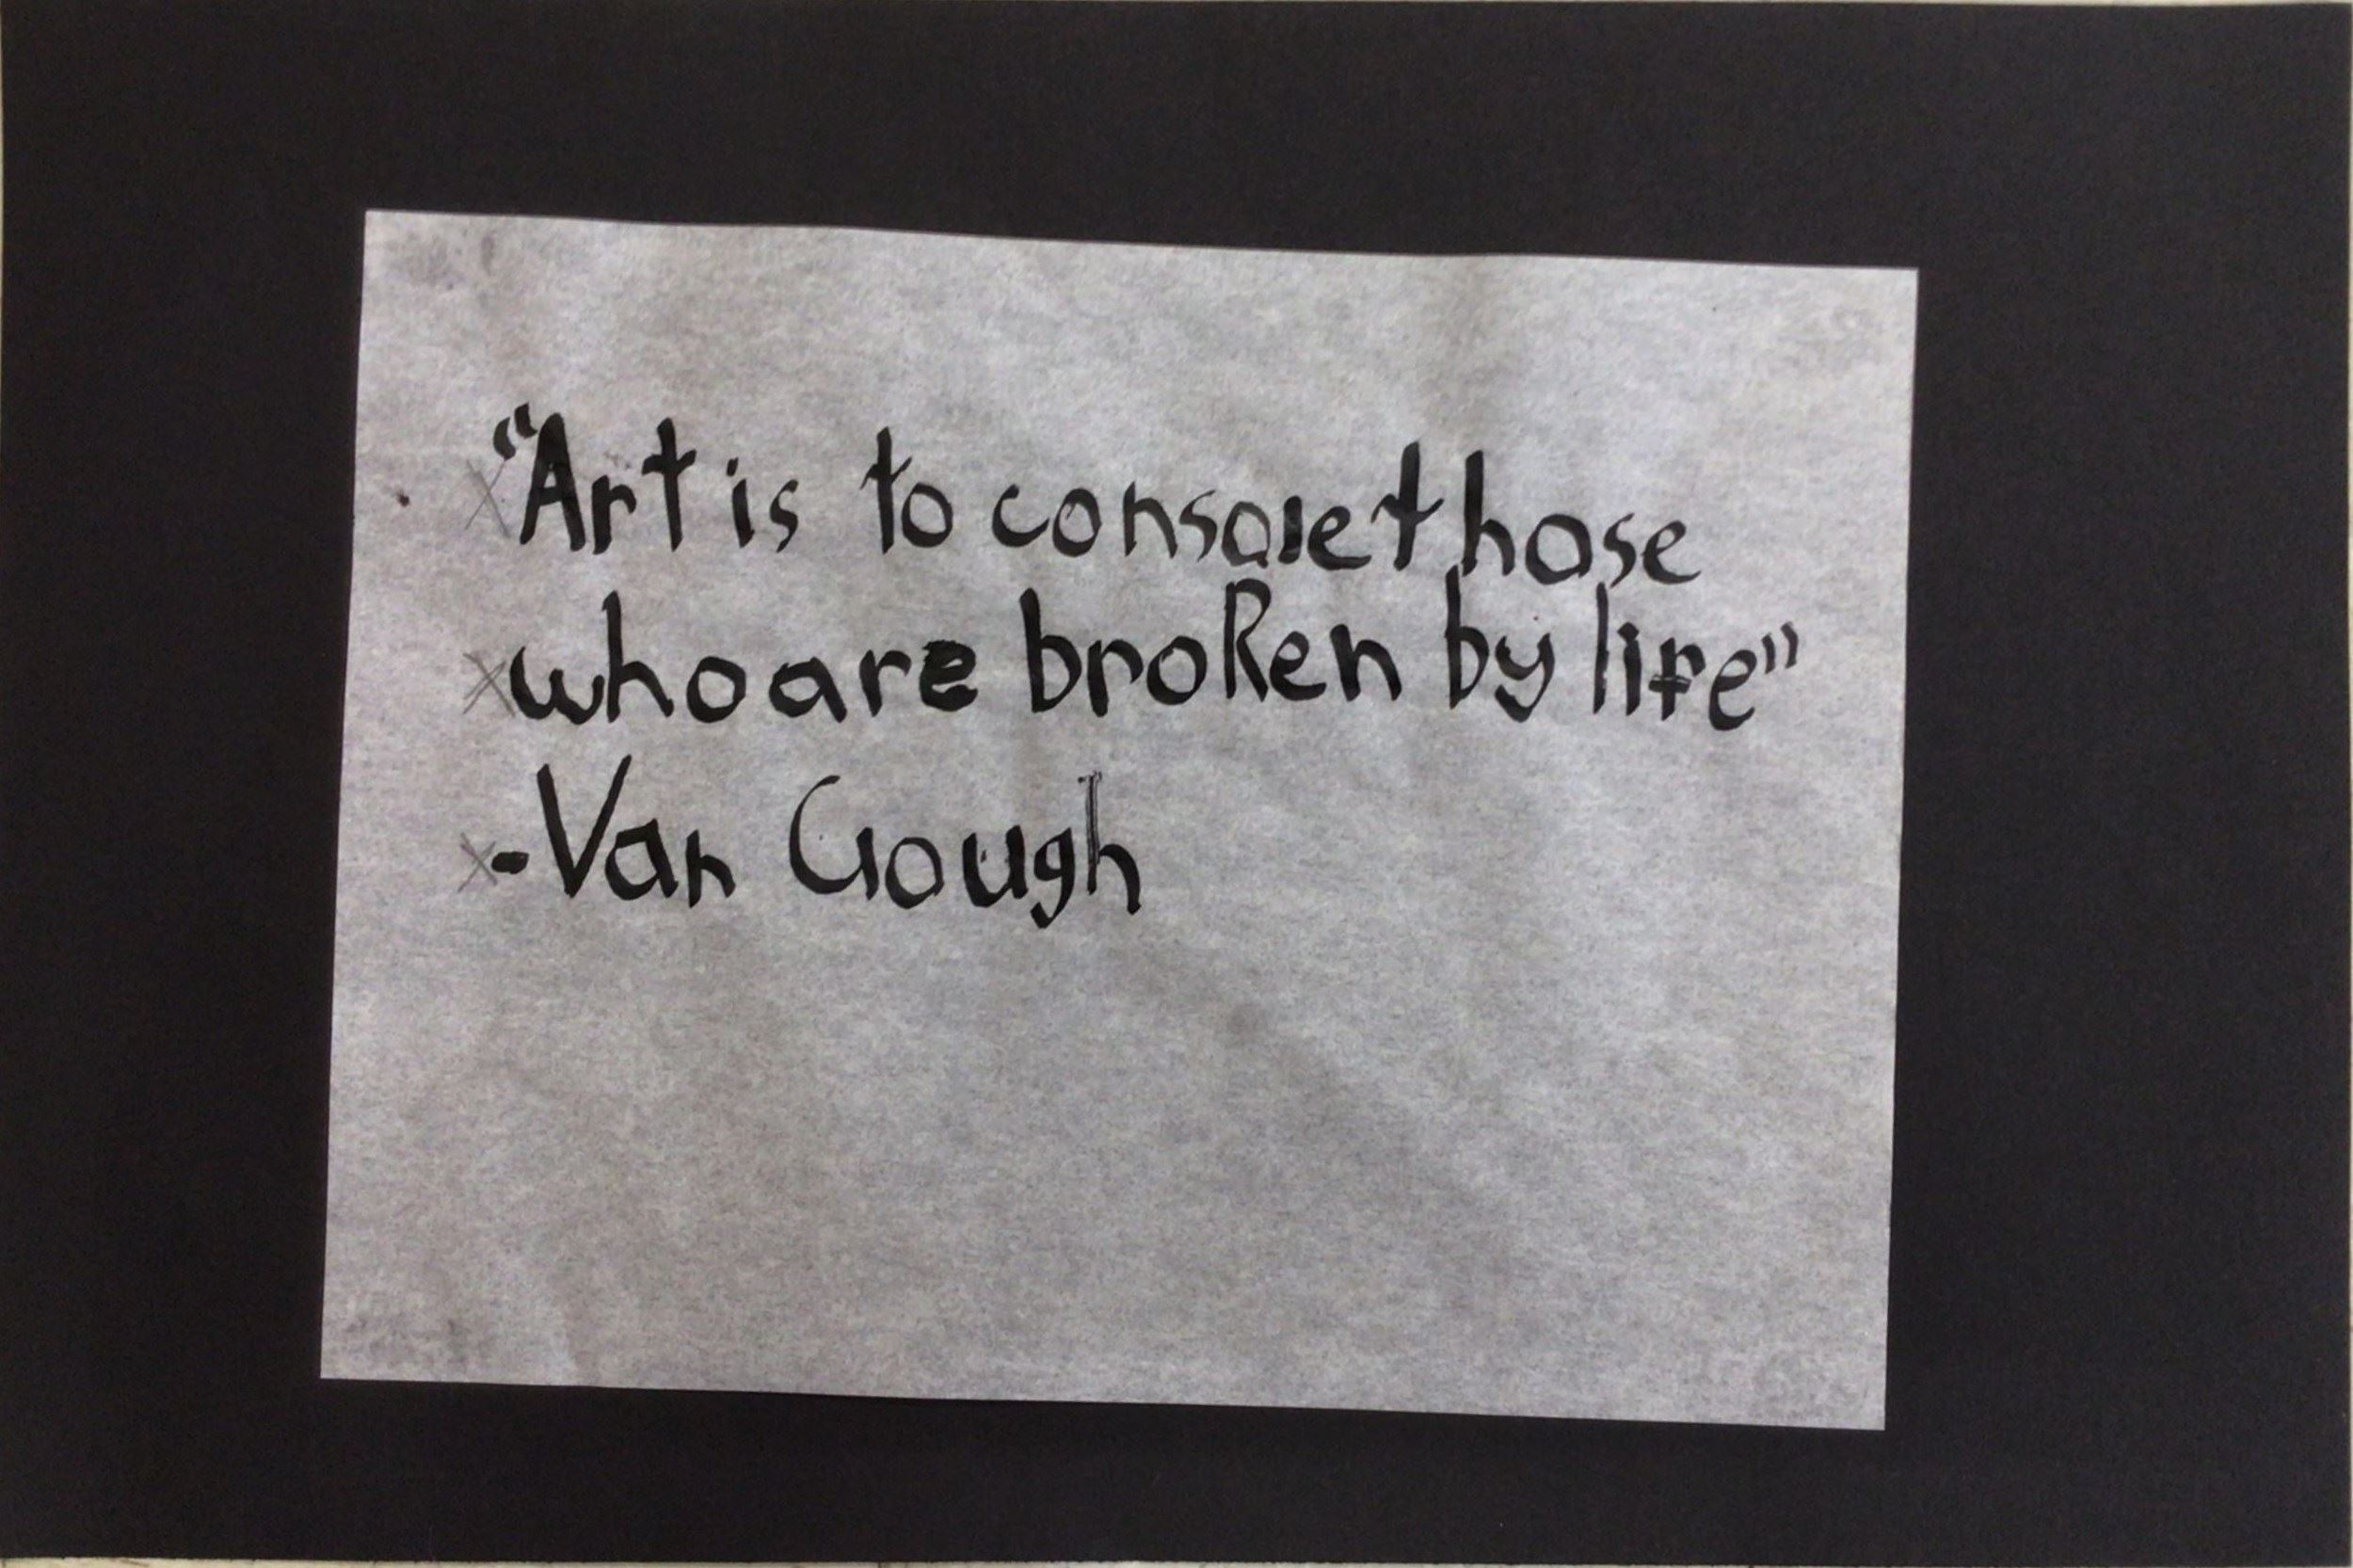 "Art is to console those
who are broken by life"
-Van Gough